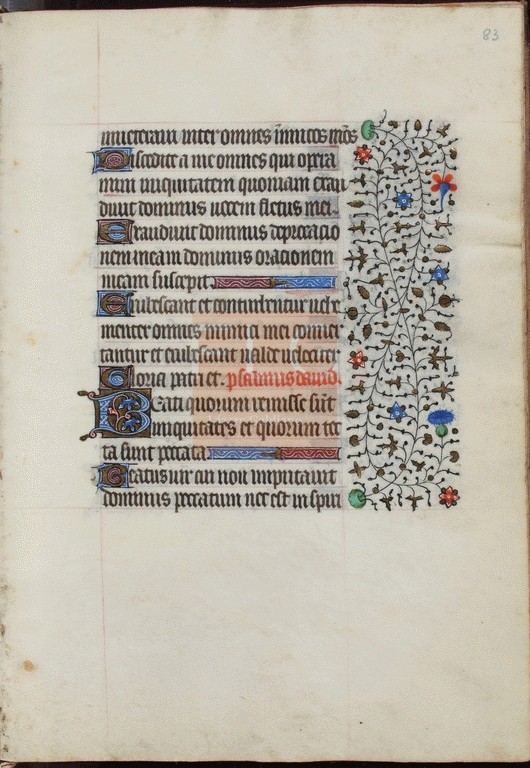 83
inueteraui inter omnes inimicos meos
Discedite a me omnes qui opera
mini iniquitatem quoniam exau
diuit dominus uocem fletus mei.
Exaudiuit dominus deprecatio
nem meam dominus orationem
meam suscepit
Erubescant et conturbentur uehe
menter omnes inimici mei conuer
tantur et erubescant ualde uelociter
Gloria patri et. psalmus dauid.
Beati quorum remisse sūt
iniquitates et quorum tec
ta sunt peccata
Beatus uir cui non imputauit
dominus peccatum nec est in spiri